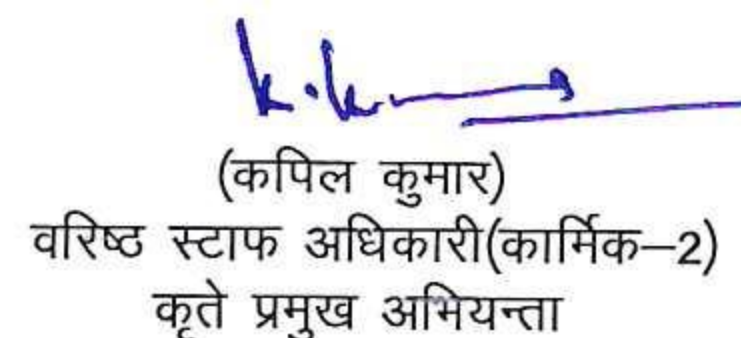 k.k
(कपिल कुमार)
वरिष्ठ स्टाफ अधिकारी(कार्मिक–2)
कृते प्रमुख अभियन्ता